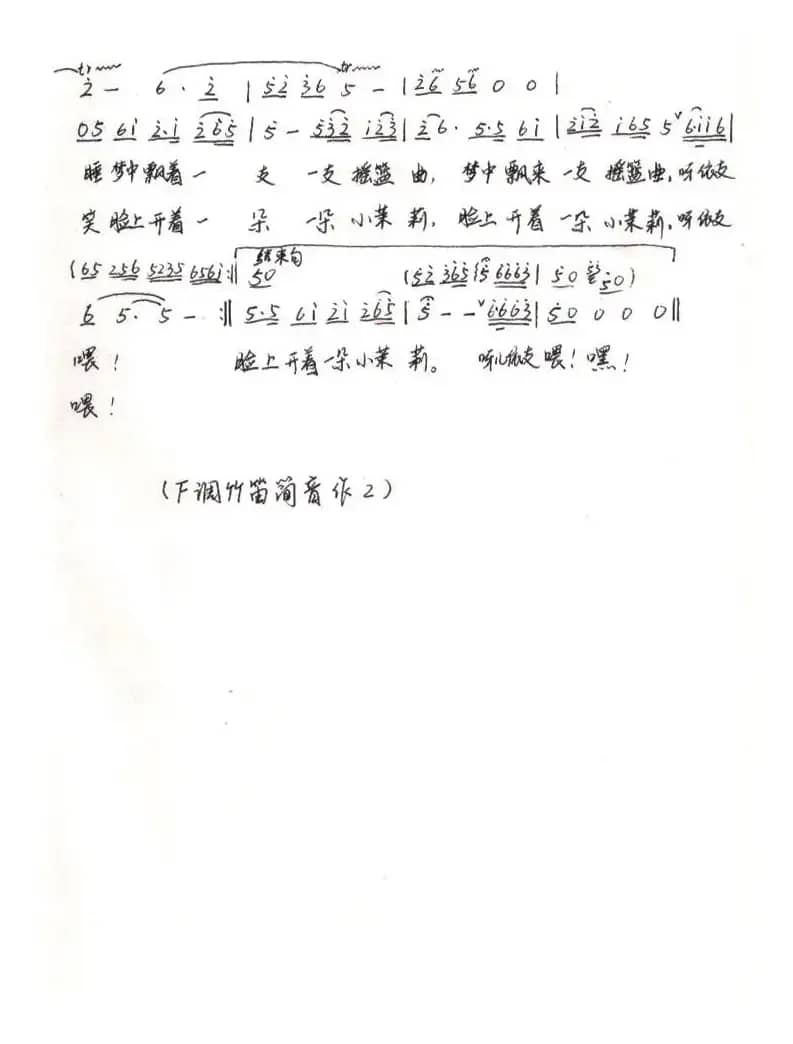 tr tr
2 — 6 · 2 | 52 36 5 — | 26 56 0 0 |
05 61 2·1 265 | 5 — 532 123 | 26· 5·5 61 | 212 165 5 ∨ 6·116 |
睡 梦中飘着一 支 一支 摇篮 曲, 梦中 飘来 一支 摇篮曲,呀依支
笑 脸上开着一 朵 一朵 小茉 莉, 脸上 开着 一朵 小茉莉,呀依支
(65 256 5235 6561 :|| 结束句 50 (52 365 (5 6663 | 50 50)
6 5· 5 — :|| 5·5 61 21 265 | 5 — — ∨ 6·663 | 50 0 0 0 ||
喂! 脸上开着一朵小茉 莉。 呀儿依支 喂! 嘿!
喂!
(下调竹笛筒音作2)